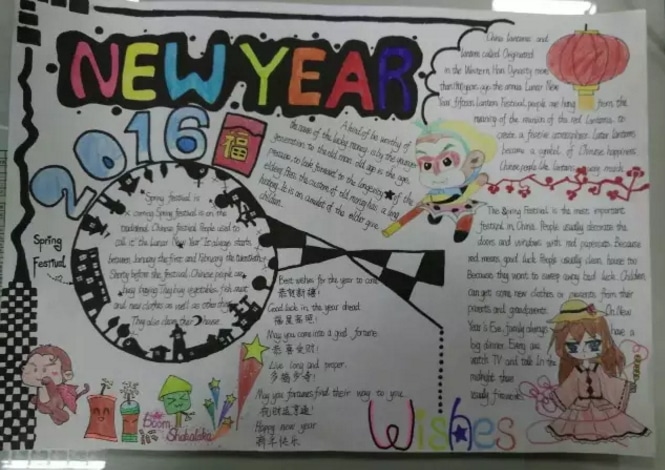 NEW YEAR
2016
福
China lanterns and
lantern called. Originated
in the Western Han Dynasty more
than years ago, the annua Lunar New
Year fifteen Lantern Festival, people are hang from the
meaning of the reunion of the red lanterns, to
create a festive atmosphere. Later lanterns
become a symbol of Chinese happiness.
Chinese people like lantern very much.
A kind of be worthy of
the name of the lucky money city the younger
generation to the old more old age is the ages
pression, to look forward to the longevity of the
elderly. Pass the custom of old money has a long
history. It is an amulet of the elder give
children.
Spring
Festival
Spring festival is
coming. Spring festival is an the
traditional Chinese festival. People used to
call it "the Lunar New Year". It always starts
between January the first and February the twentieth.
Shortly before the festival, Chinese people are
busy buying. They buy vegetables, fish, meat
and new clothes as well as other things.
They also clean their house.
The Spring Festival is the most important
festival in China. People usually decorate the
doors and windows with red papercuts. Because
red means good luck. People usually clean house too.
Because they want to sweep away bad luck. Children
can get some new clothes or presents from their
parents and grandparents. On New
Year's Eve, family always have a
big dinner. Every are
watch TV and talk. In the
midnight there
usually fireworks.
Best wishes for the year to come
恭贺新禧!
Good luck in the year ahead.
福星高照!
May you come into a good fortune.
恭喜发财!
Live long and proper.
多福多寿!
May you fortunes find their way to you.
祝财运亨通!
Happy new year
新年快乐
Boom
Shakalaka
Wishes